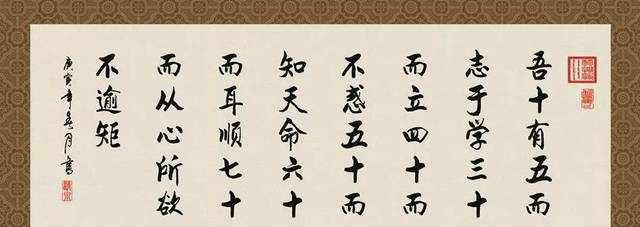 吾十有五而
志于学三十
而立四十而
不惑五十而
知天命六十
而耳顺七十
而从心所欲
不逾矩
庚寅年吴月书